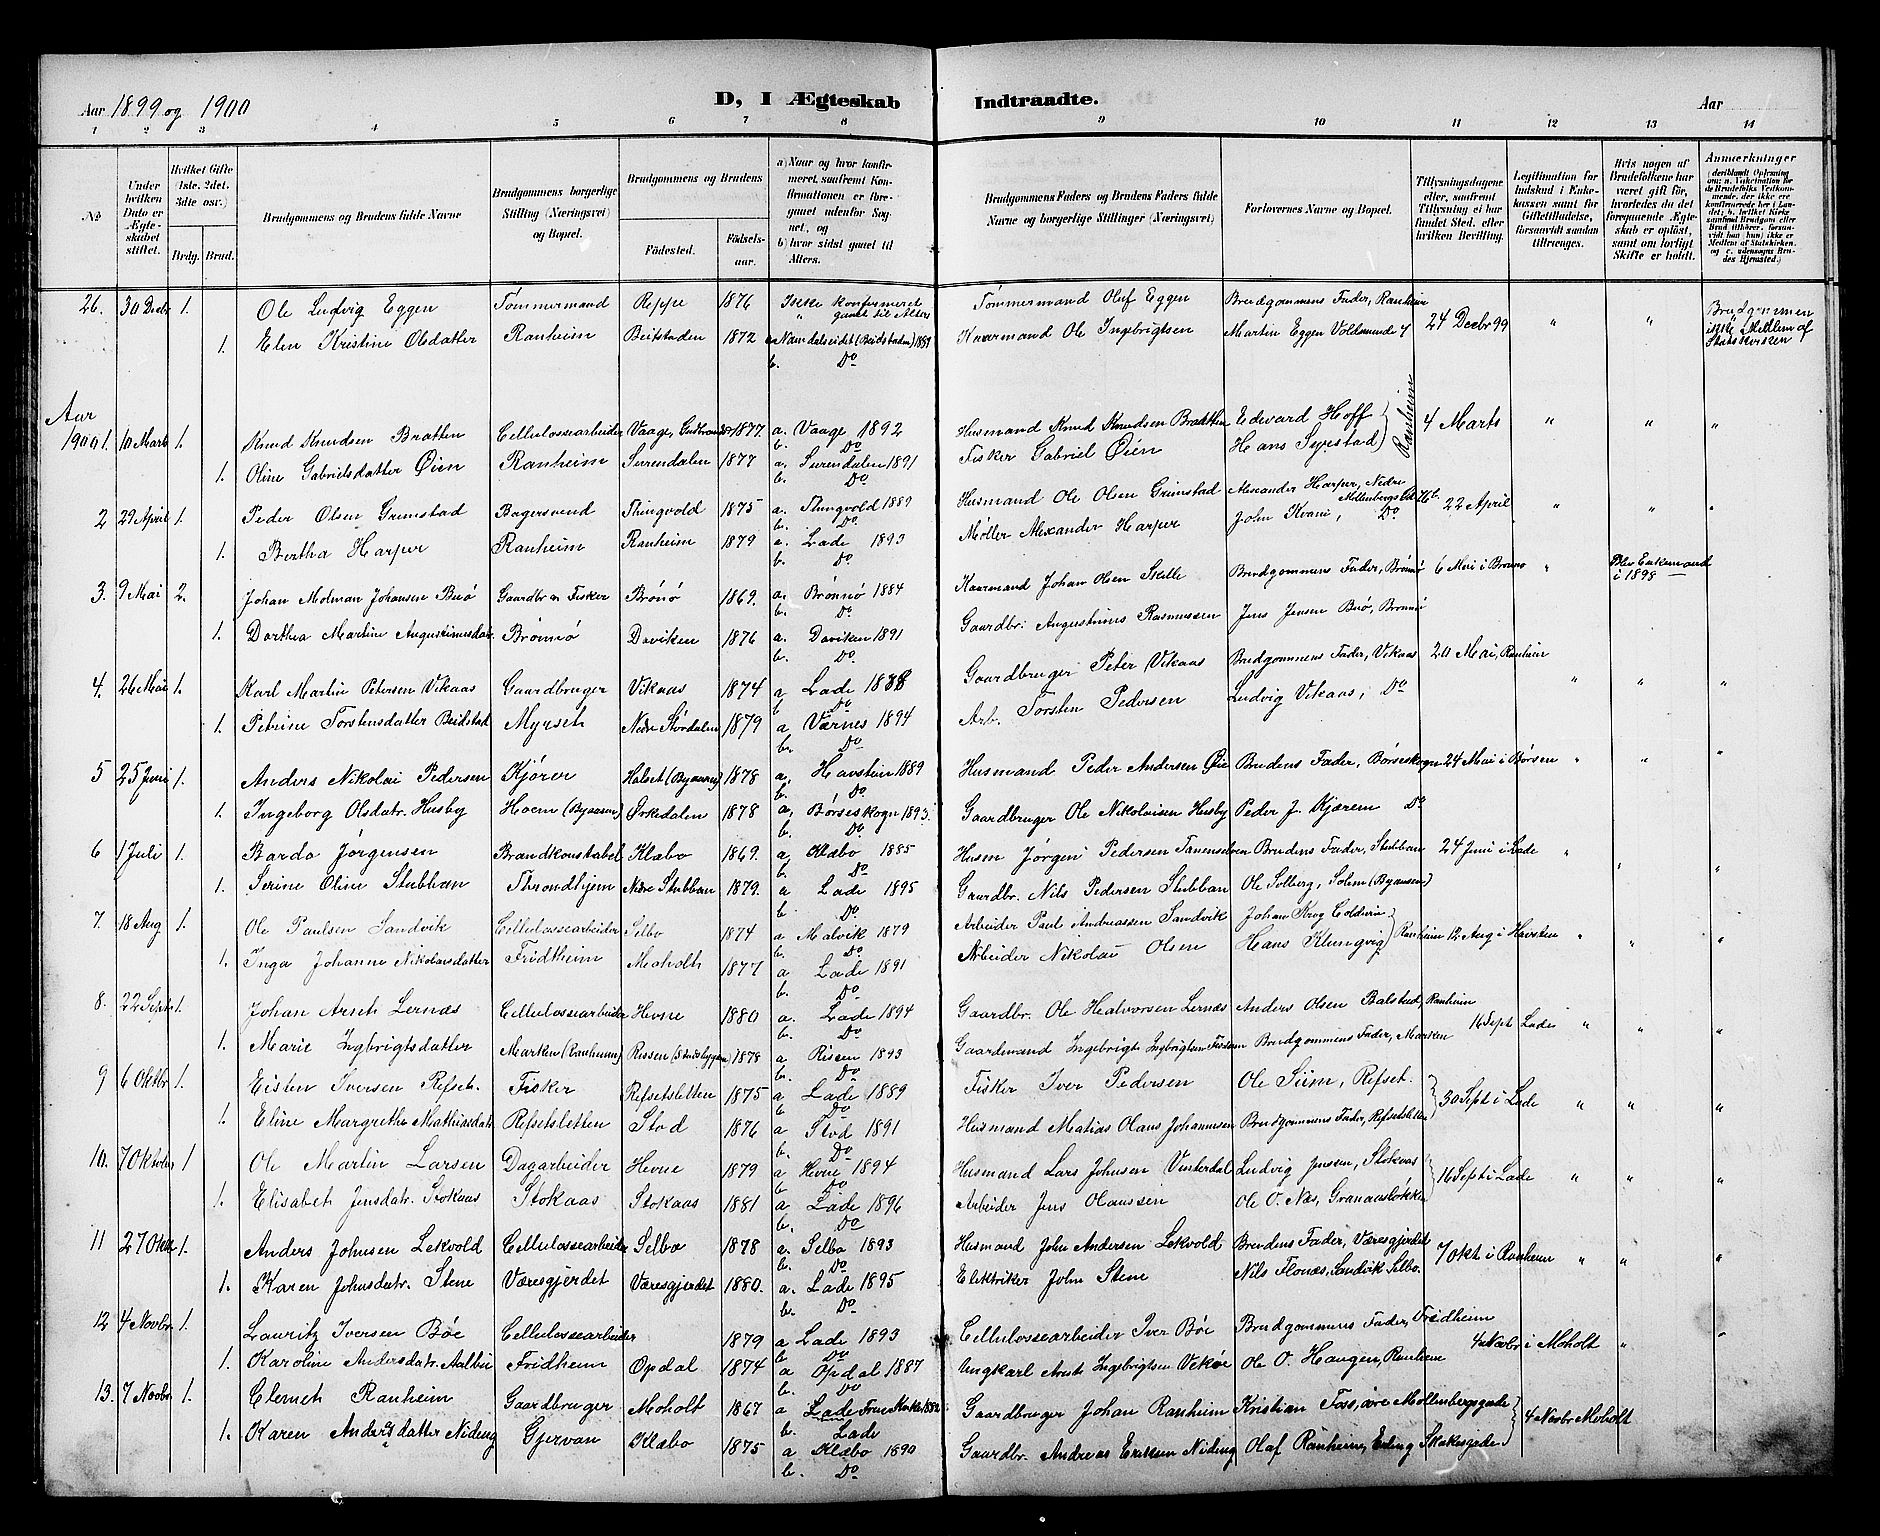 Aar 1899 og 1900
D, I Ægteskab Indtraadte.
Aar
1 2 3 4 5 6 7 8 9 10 11 12 13 14
No
Under hvilken Dato er Ægteskabet stiftet.
Hvilket Gifte (1ste, 2det, 3dte osv.)
Brdg. Brud.
Brudgommens og Brudens fulde Navne
Brudgommens borgerlige Stilling (Næringsvei) og Bopæl.
Brudgommens og Brudens
Fødested.
Fødselsaar.
a) Naar og hvor konfirmeret, samt fremt Konfirmationen er foregaaet udenfor Sognet, og
b) hvor sidst gaaet til Alters.
Brudgommens Faders og Brudens Faders fulde Navne og borgerlige Stillinger (Næringsvei)
Forlovernes Navne og Bopæl.
Tillysningsdagene eller, saafremt Tillysning ei har fundet Sted, efter hvilken Bevilling.
Legitimation for Indskud i Enkekassen samt for Giftetilladelse, forsaavidt saadan tiltrænges.
Hvis nogen af Brudefolkene har været gift før, hvorledes da det foregaaende Ægteskab er opløst, samt om lovligt Skifte er holdt.
Anmærkninger
26. 30 Decbr 1. Ole Ludvig Eggen Tømmermand Reppe 1876 Ikke konfirmeret Tømmermand Oluf Eggen Brudgommens Fader, Ranheim 24 Decbr 99 " " Brudgommen
" gaaet til Alters
1. Elen Kristine Olsdatter Ranheim Beitstaden 1872 a Namdalseidet (Beidstaden) 1889 Kaarmand Ole Ingebrigtsen Martin Eggen Voldsminde ikke Medlem af Statskirken
b. Do
Aar
1900 1. 10 Marts 1. Knud Knudsen Bratten Cellulossearbeider Vaage, Gudbrandsd 1877. a. Vaage 1892 Husmand Knud Knudsen Brætten Edevard Hoff Ranheim 4 Marts " " "
b. Do
1. Oline Gabrielsdatter Øien Ranheim Surendalen 1877 a. Surendalen 1891 Fisker Gabriel Øien Hans Syrestad
b. Do
2 29 April 1. Peder Olsen Grimstad Bagersvend Thingvold 1875 a. Thingvold 1889 Husmand Ole Olsen Grimstad Alexander Harper, Nedre Møllenbergs Gd 76b. 22 April " " "
b. Do
1. Bertha Harper Ranheim Ranheim 1879 a. Lade 1893 Møller Alexander Harper John Kvam, Do
b. Do
3. 9 Mai 2. Johan Molman Johansen Buø Gaardbr og Fisker Brønø 1869. a. Brønnø 1884 Kaarmand Johan Olsen Skille Brudgommens Fader, Brønnø 6 Mai i Brønø " Blev Enkemand i 1898
b. Do
1. Dorthea Martine Augustinusdatr. Brønnø Daviken 1876 a. Daviken 1891 Gaardbr: Augustinus Rasmussen Jens Jensen Buø, Brønnø
b. Do
4. 26 Mai 1. Karl Martin Petersen Vikaas Gaardbruger Vikaas 1874 a Lade 1888 Gaardbruger Peter Vikaas Brudgommens Fader, Vikaas 20 Mai, Ranheim " " "
b Do
1. Petrine Torstensdatter Beidstad Myrseth Nedre Stordalen 1879 a Værnes 1894 Arb. Torsten Pedersen Ludvig Vikaas, Do
b. Do
5 25 Juni 1. Anders Nikolai Pedersen Kjører Halset (Byaasen) 1878 a, Havstein 1889 Husmand Peder Andersen Øie Brudens Fader, Børseskogn 24 Mai i Børsen " " "
b. Do
1. Ingeborg Olsdatr. Husby Hoem (Byaasen) Ørkedalen 1878 a, Børseskogn 1893. Gaardbruger Ole Nikolaisen Husby Peder J. Kjærem Do
b. Do
6 1 Juli 1. Bardo Jørgensen Brandkonstabel Klæbo 1869. a, Klæbo 1885 Husm Jørgen Pedersen Tanemselven Brudens Fader, Stubban 24 Juni i Lade " " "
b. Do
1. Serine Oline Stubban Throndhjem Nedre Stubban 1879. a Lade 1895 Gaardbr. Nils Pedersen Stubban Ole Solberg, Solem (Byaasen)
b. Do
7. 18 Aug 1. Ole Paulsen Sandvik Cellulossearbeider Selbo 1874 a Malvik 1879 Arbeider Paul Andreassen Sandvik Johan Krog Coldevin Ranheim 12 Aug i Havsten " " "
b. Do
1. Inga Johanne Nikolaisdatter Fridheim Moholt 1877 a Lade 1891 Arbeider Nikolai Olsen Hans Klungvig
b. Do
8. 22 Sept. 1. Johan Arnt Lernæs Cellulossearbeider Hevne 1880 a. Lade 1894 Gaardbr. Ole Halvorsen Lernæs Anders Olsen Balstad, Ranheim 16 Sept Lade " " "
b. Do
1. Marie Ingbrigtsdatter Marken (Ranheim) Rissen (Stadsbygden) 1878 a Rissen 1893 Gaardmand Ingebrigt Ingbrigtsen Brudgommens Fader, Marken
b. Do
9 6 Oktbr 1. Eisten Iversen Refset. Fisker Refsetsletten 1875 a Lade 1889 Fisker Iver Pedersen Ole Siim, Refset. 30 Sept i Lade " " "
b Do
1. Eline Margrethe Mathiasdatr Refsetsletten Stod 1876 a Stod 1891 Husmand Matias Olaus Johannesen Brudgommens Fader, Refsetsletten
b. Do
10. 7 Oktober 1 Ole Martin Larsen Dagarbeider Hevne 1879 a Hevne 1894 Husmand Lars Johnsen Vinterdal Ludvig Jensen, Stokaas 16 Sept i Lade " " "
b. Do
1. Elisabet Jensdatr. Stokaas Stokaas Stokaas 1881 a Lade 1896 Arbeider Jens Olaussen Ole O. Næs, Granaasløkken
b. Do
11 27 Oktbr 1. Anders Johnsen Lekvold Cellulossearbeider Selbo 1878 a. Selbo 1893 Husmand John Andersen Lekvold Brudens Fader, Væresgjerdet 7 Okt i Ranheim " " "
b. Do
1. Karen Johnsdatr. Stene Væresgjerdet Væresgjerdet 1880. a. Lade 1895 Elektriker John Stene Nils Flonæs, Sandvik Selbo.
b. Do
12 4 Novbr. 1. Lauritz Iversen Bøe Cellulossearbeider 1879 a Lade 1893 Cellulossearbeider Iver Bøe Brudgommens Fader, Fridheim 4 Novbr i Moholt " "
b Do
1. Karoline Andersdatr. Aalbu Fridheim Opdal 1874 a Opdal 1887 Ungkarl Arnt Ingebrigtsen Vekøe Ole O. Haugen, Ranheim
b. Do
13. 7 Novbr. 1. Clemet Ranheim Gaardbruger Moholt 1867 a Lade Frue Kirke 1882 Gaardbruger Johan Ranheim Kristian Foss, øvre Møllenbergsgade 4 Novbr Moholt
b. Lade
1. Karen Andersdatter Nideng Gjervan Klæbo 1875 a Klæbo 1890 Gaardbr. Andreas Eriksen Nideng Olaf Ranheim, Erling Skakesgade
b. Do